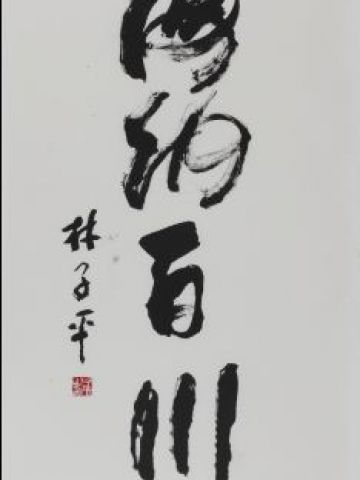 海纳百川
林子平